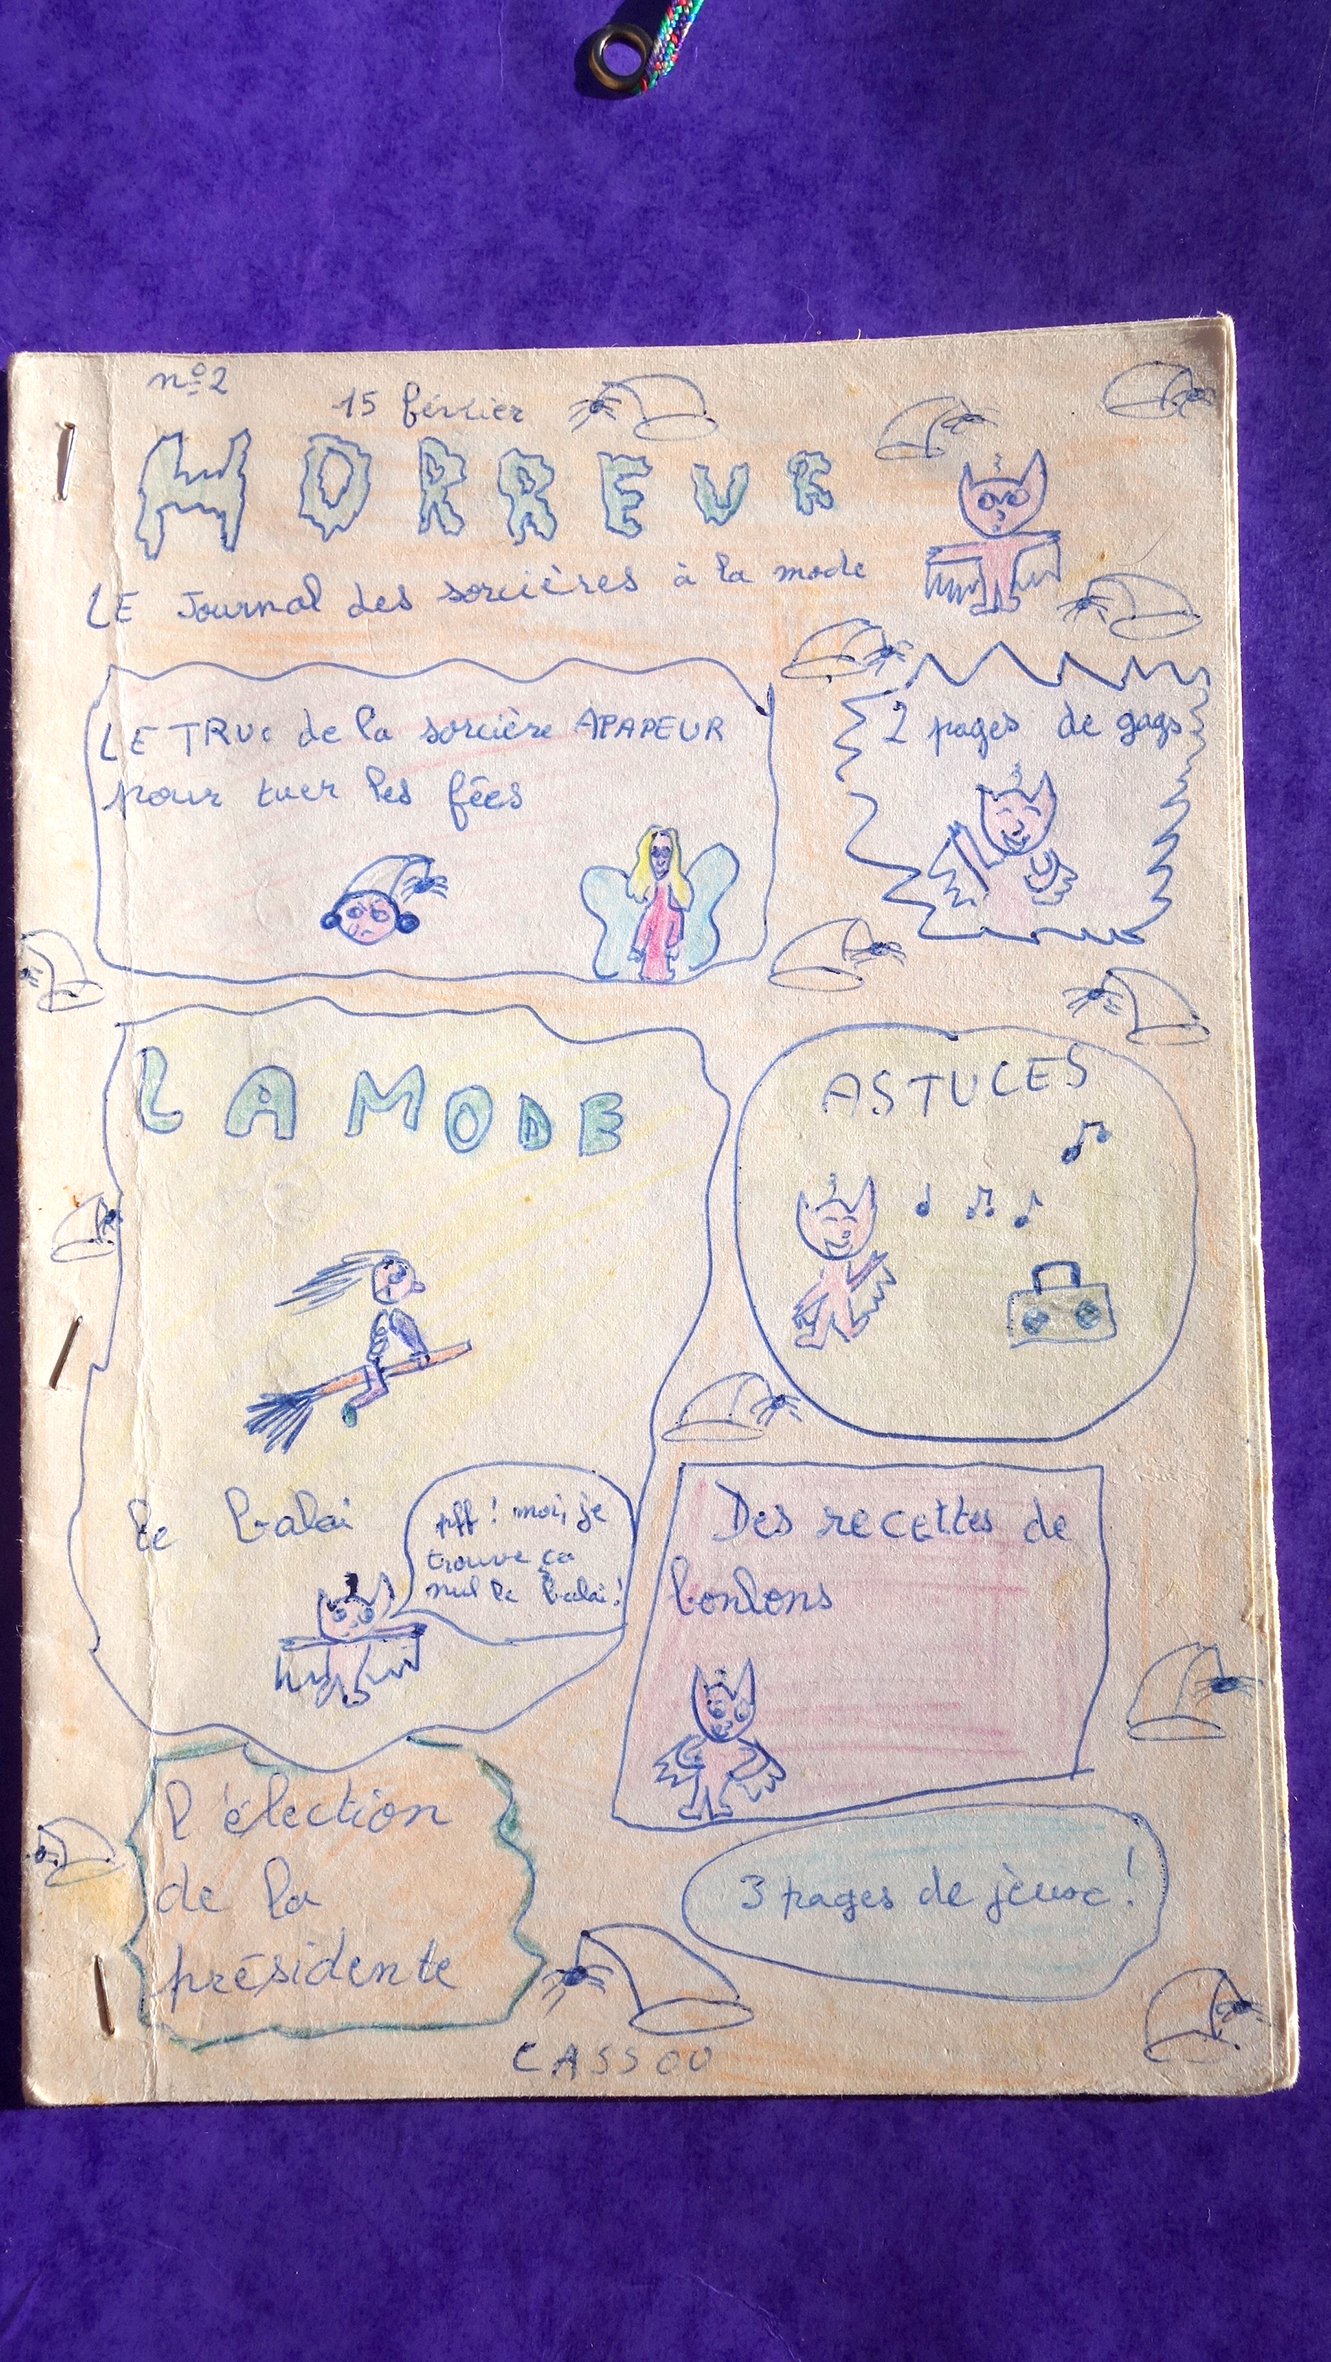 n°2
15 février
HORREUR
LE Journal des sorcières à la mode
LE TRUC de la sorcière APAPEUR
pour tuer les fées
2 pages de gags
LA MODE
le balai
pff ! moi, je
trouve ça
nul le balai !
ASTUCES
Des recettes de
bonbons
l'élection
de la
présidente
3 pages de jeux !
CASSOU